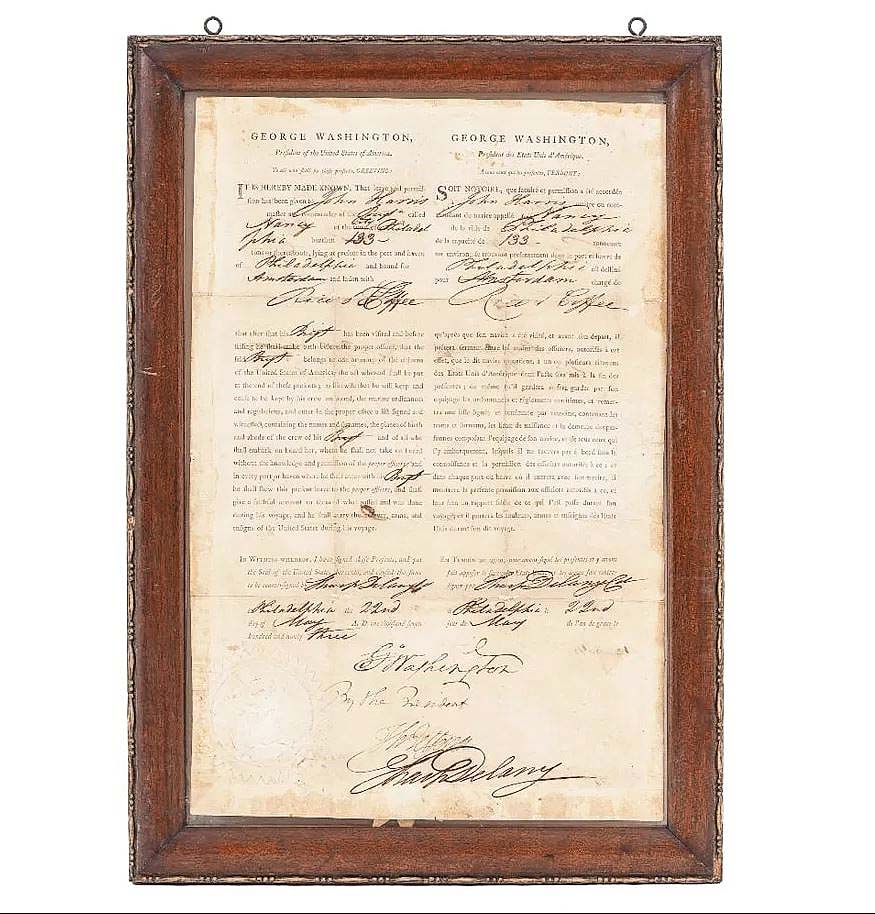 GEORGE WASHINGTON,
President of the United States of America.
To all who shall see these presents, GREETING:
IT IS HEREBY MADE KNOWN, That leave and permis-
sion has been given to John Harris
master and commander of the Brigt called
Nancy of the City of Philadel
phia burthen 133
tons or thereabouts, lying at present in the port and haven
of Philadelphia and bound for
Amsterdam and laden with
Rice & Coffee
that after that his Brigt has been visited and before
sailing he shall make oath before the proper officers, that the
said Brigt belongs to one or more of the citizens
of the United States of America, the act whereof shall be put
at the end of these presents; as likewise that he will keep and
cause to be kept by his crew on board, the marine ordinances
and regulations, and enter in the proper office a list signed and
witnessed, containing the names and surnames, the places of birth
and abode of the crew of his Brigt and of all who
shall embark on board her, whom he shall not take on board
without the knowledge and permission of the proper officers; and
in every port or haven where he shall enter with his Brigt
he shall shew this present leave to the proper officers, and shall
give a faithful account to them of what passed and was done
during his voyage, and he shall carry the colours, arms, and
ensigns of the United States during his voyage.
IN WITNESS WHEREOF, I have signed these Presents, and put
the Seal of the United States hereunto, and caused the same
to be counter-signed by Sharp Delany
Philadelphia the 22nd
day of May A. D. one thousand seven
hundred and ninety three
GEORGE WASHINGTON,
President des Etats Unis d'Amérique.
A tous ceux qui ces présentes, verront:
SOIT NOTOIRE, que faculté et permission a été accordée
John Harris maitre ou com-
mandant du navire appellé Nancy
de la ville de Philadelphia
de la capacité de 133 tonneaux
ou environ, se trouvant présentement dans le port et havre de
Philadelphia et destiné
pour Amsterdam chargé de
Rice & Coffee
qu'après que son navire a été visité, et avant son départ, il
prêtera serment entre les mains des officiers, autorisés à cet
effet, que le dit navire appartient, à un ou plusieurs citoyens
des Etats Unis d'Amérique dont l'acte sera mis à la fin des
présentes; de même qu'il gardera et fera garder par son
équipage les ordonnances et réglements maritimes, et remet-
tra une liste signée et confirmée par témoins, contenant les
noms et surnoms, les lieux de naissance et la demeure des per-
sonnes composant l'équipage de son navire, et de tous ceux qui
s'y embarqueront, lesquels il ne recevra pas à bord sans la
connoissance et la permission des officiers autorisés à ce; et
dans chaque port ou havre où il entrera avec son navire, il
montrera la présente permission aux officiers autorisés à ce, et
leur fera un rapport fidèle de ce qui s'est passé durant son
voyage; et il portera les couleurs, armes et enseignes des Etats
Unis durant son dit voyage.
EN TEMOIN DE QUOI, nous avons signé les présentes et y avons
fait apposer le Sceau des Etats Unis et les avons fait contre-
signer par Sharp Delany
à Philadelphia le 22nd
jour de May de l'an de grace le
Go Washington
By the President
Th: Jefferson
Sharp Delany